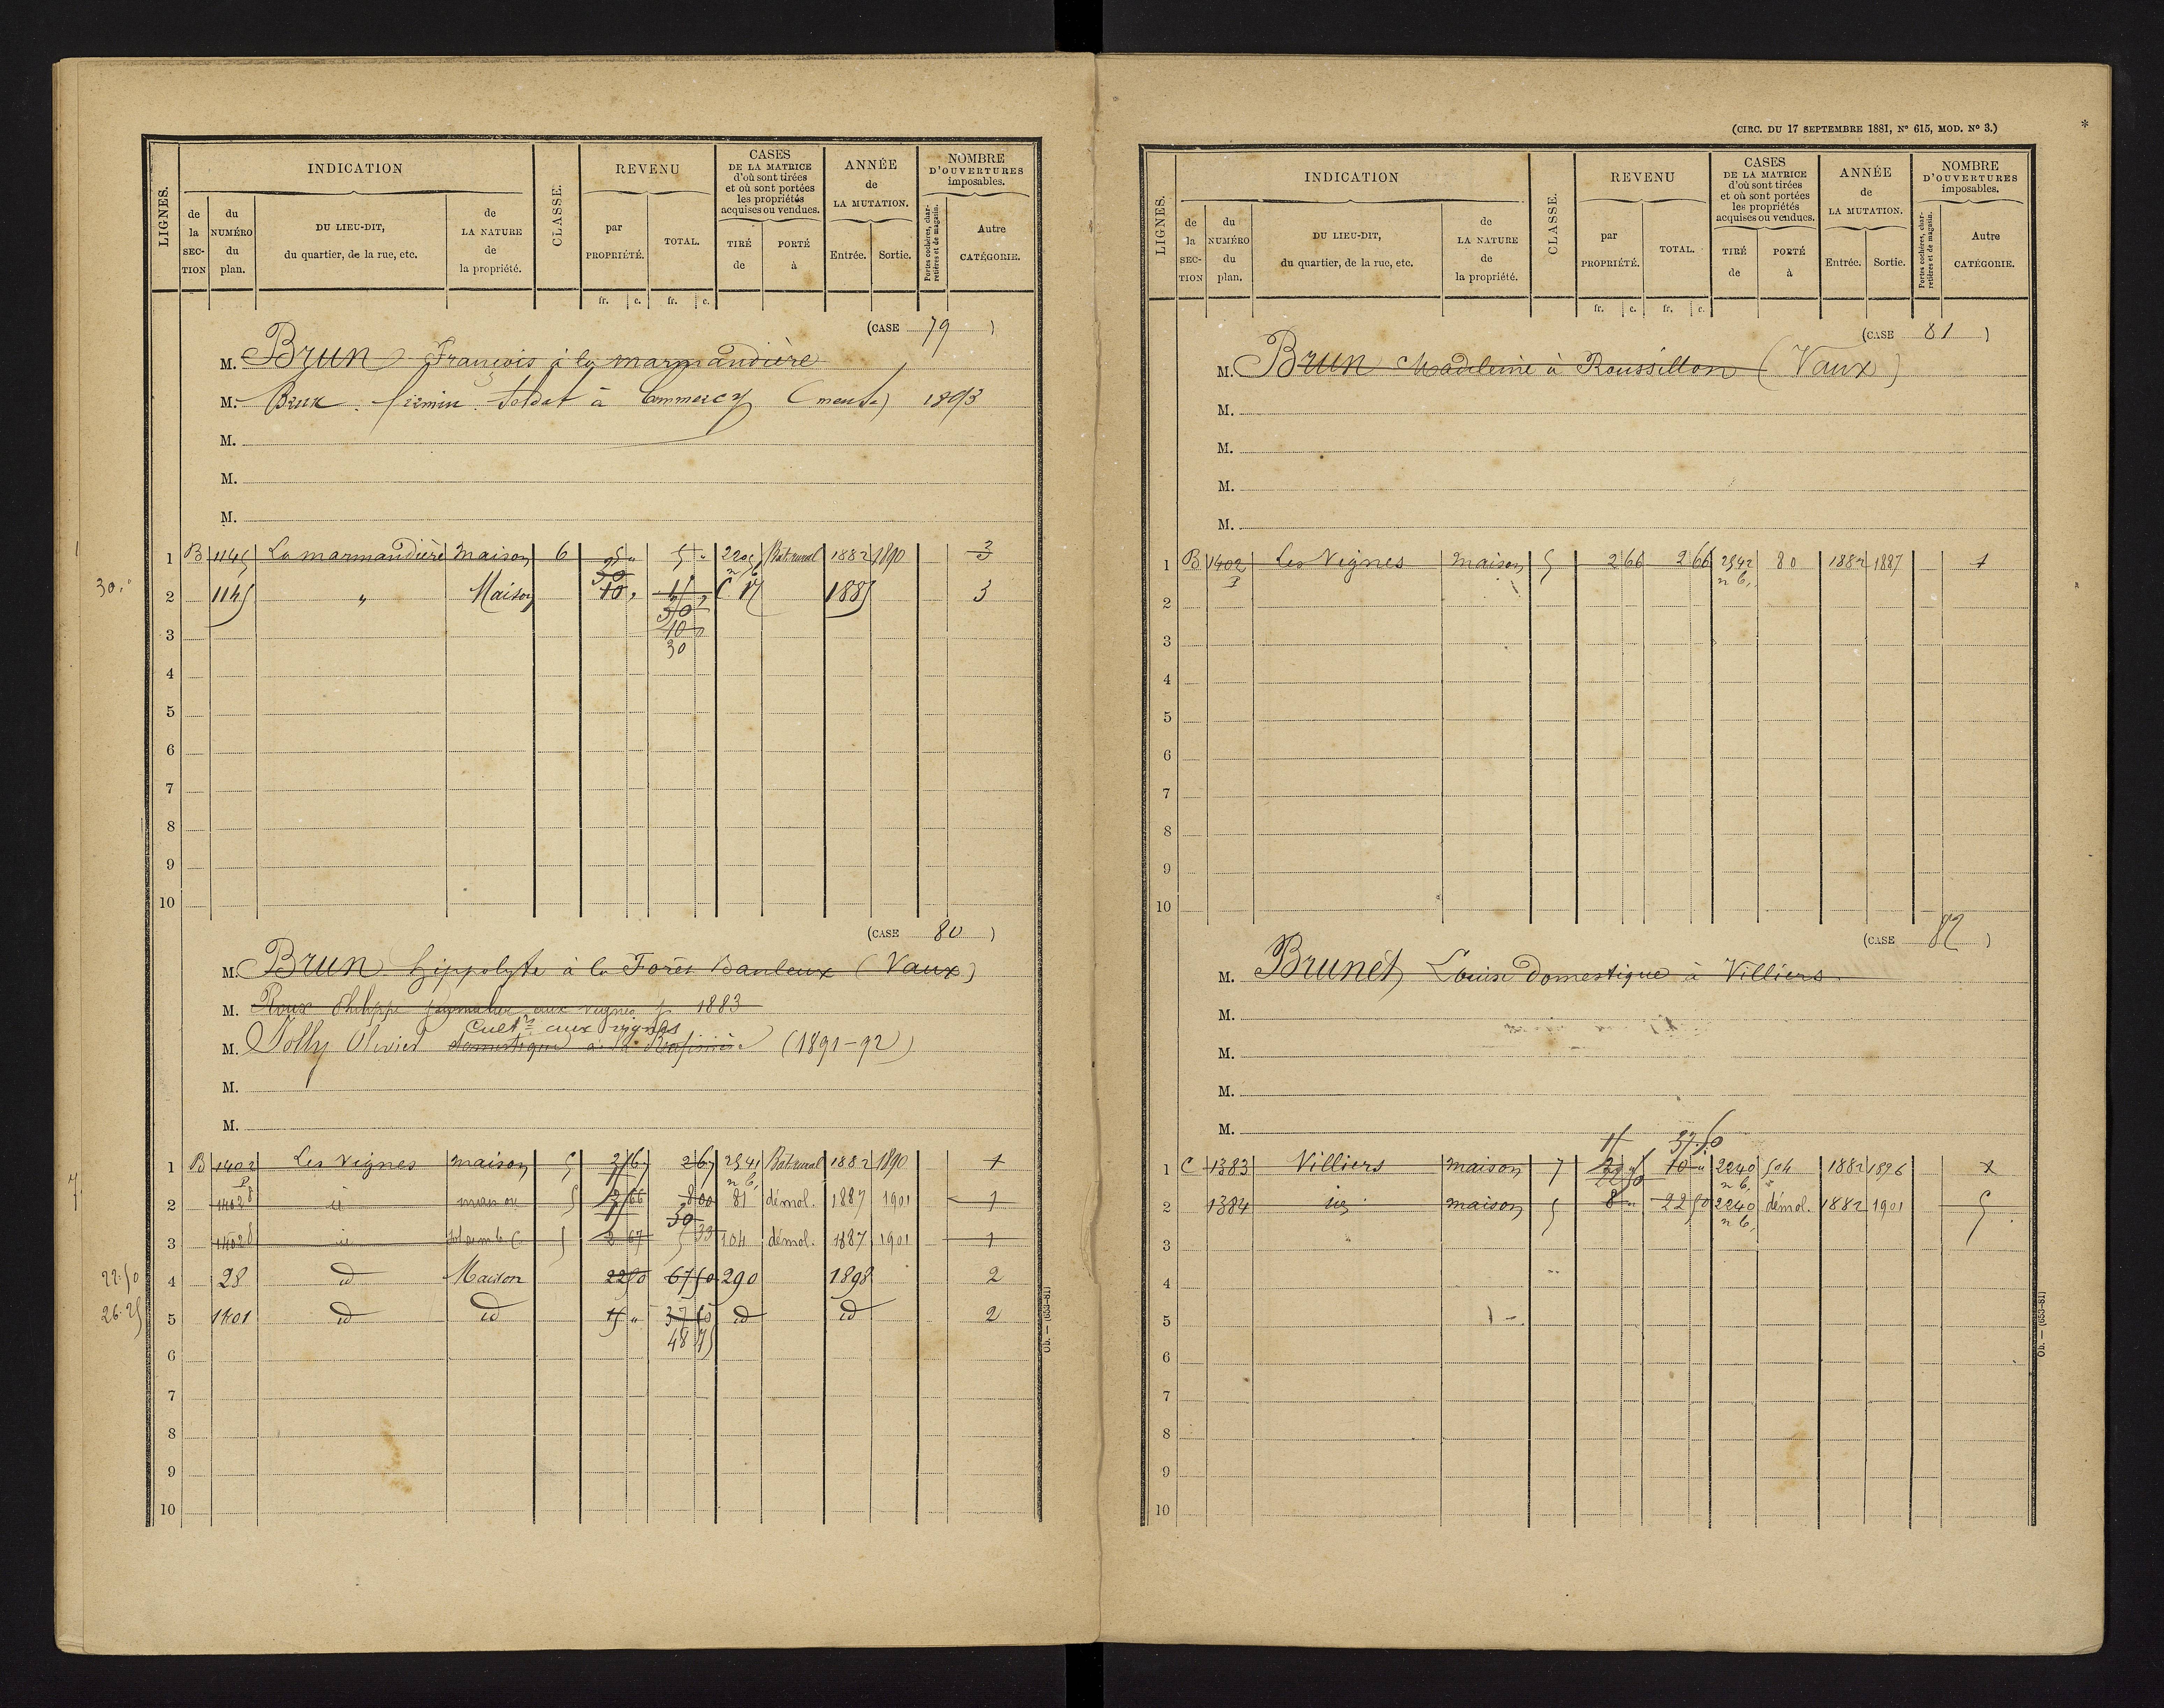 LIGNES.
INDICATION
de la SECTION
du NUMÉRO du plan.
DU LIEU-DIT, du quartier, de la rue, etc.
de LA NATURE de la propriété.
CLASSE.
REVENU
par PROPRIÉTÉ.
TOTAL.
CASES DE LA MATRICE d'où sont tirées et où sont portées les propriétés acquises ou vendues.
TIRÉ de
PORTÉ à
ANNÉE de LA MUTATION.
Entrée.
Sortie.
NOMBRE D'OUVERTURES imposables.
Portes cochères, charretières et de magasin.
Autre CATÉGORIE.
fr. c. fr. c.
(CASE 79)
M. Brun François à la marmandière
M. Brun firmin Soldat à Commercy (meuse) 1893
M.
M.
M.
1 B 1145 La marmandière maison 6 5 " 5 " 2205 Bat. rural 1882 1890 3
30 n 6
30 " 2 1145 " Maison 10 " 15 C. N 1885 3
30
3 10
30
4
5
6
7
8
9
10
(CASE 80)
M. Brun hippolyte à la Forêt Banleux (Vaux)
M. Roux Philippe journalier aux vignes 1883
Cultr aux vignes
M. Jolly Olivier domestique à la (1891-92)
M.
M.
1 B 1402 Les Vignes maison 5 2 67 2 67 2541 Bat. rural 1882 1890 1
P n 6
2 1402 id maison 5 2 66 8 00 81 démol. 1887 1901 1
15 30
3 1402 id 5 2 67 5 33 104 démol. 1887 1901 1
22.50 4 28 id Maison 22 50 67 50 290 1898 2
26.25 5 1401 id id 15 " 37 50 id id 2
6 48 75
7
8
9
10
Ob. — (653-81)
(CIRC. DU 17 SEPTEMBRE 1881, N° 615, MOD. N° 3.)
*
LIGNES.
INDICATION
de la SECTION
du NUMÉRO du plan.
DU LIEU-DIT, du quartier, de la rue, etc.
de LA NATURE de la propriété.
CLASSE.
REVENU
par PROPRIÉTÉ.
TOTAL.
CASES DE LA MATRICE d'où sont tirées et où sont portées les propriétés acquises ou vendues.
TIRÉ de
PORTÉ à
ANNÉE de LA MUTATION.
Entrée.
Sortie.
NOMBRE D'OUVERTURES imposables.
Portes cochères, charretières et de magasin.
Autre CATÉGORIE.
fr. c. fr. c.
(CASE 81)
M. Brun Madeleine à Roussillon (Vaux)
M.
M.
M.
M.
1 B 1402 Les Vignes maison 5 2 66 2 66 2542 80 1882 1887 1
P n 6
2
3
4
5
6
7
8
9
10
(CASE 82)
M. Brunet Louis domestique à Villiers
M.
M.
M.
M.
15 37.50
1 C 1383 Villiers maison 7 2 " 10 " 2240 504 1882 1896 1
22 50 n 6
2 1384 id maison 5 8 " 22 50 2240 démol. 1882 1901 5
n 6
3
4
5
6
7
8
9
10
Ob. — (653-81)